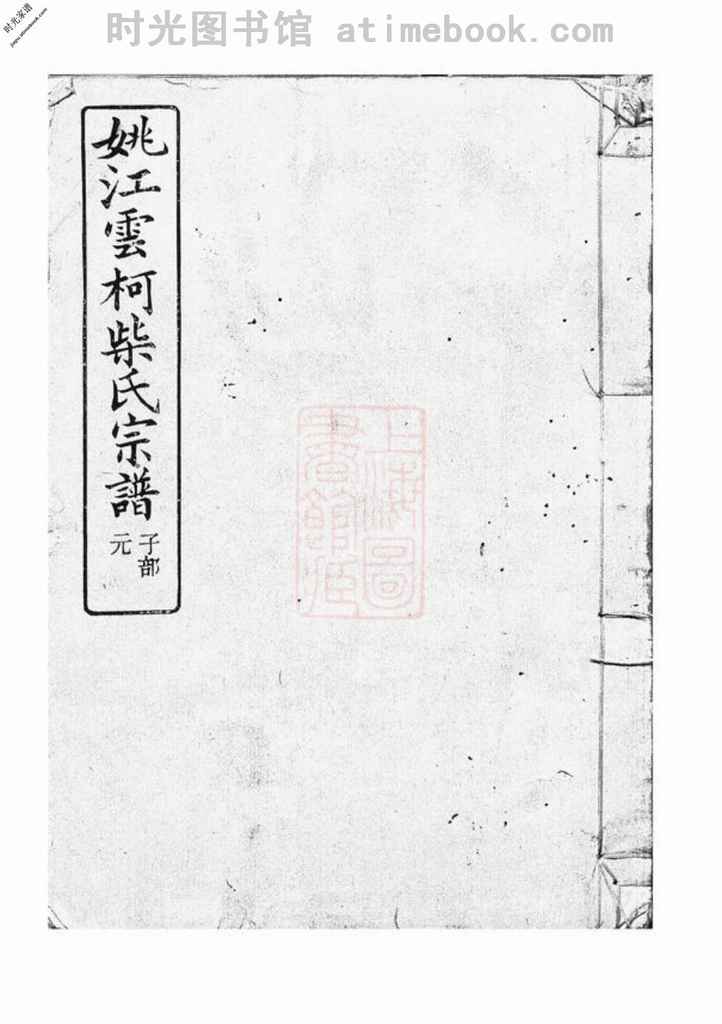 时光家谱
jiapu.atimebook.com
时光图书馆 atimebook.com
姚江雲柯柴氏宗譜
子部
元
上海圖
書館藏